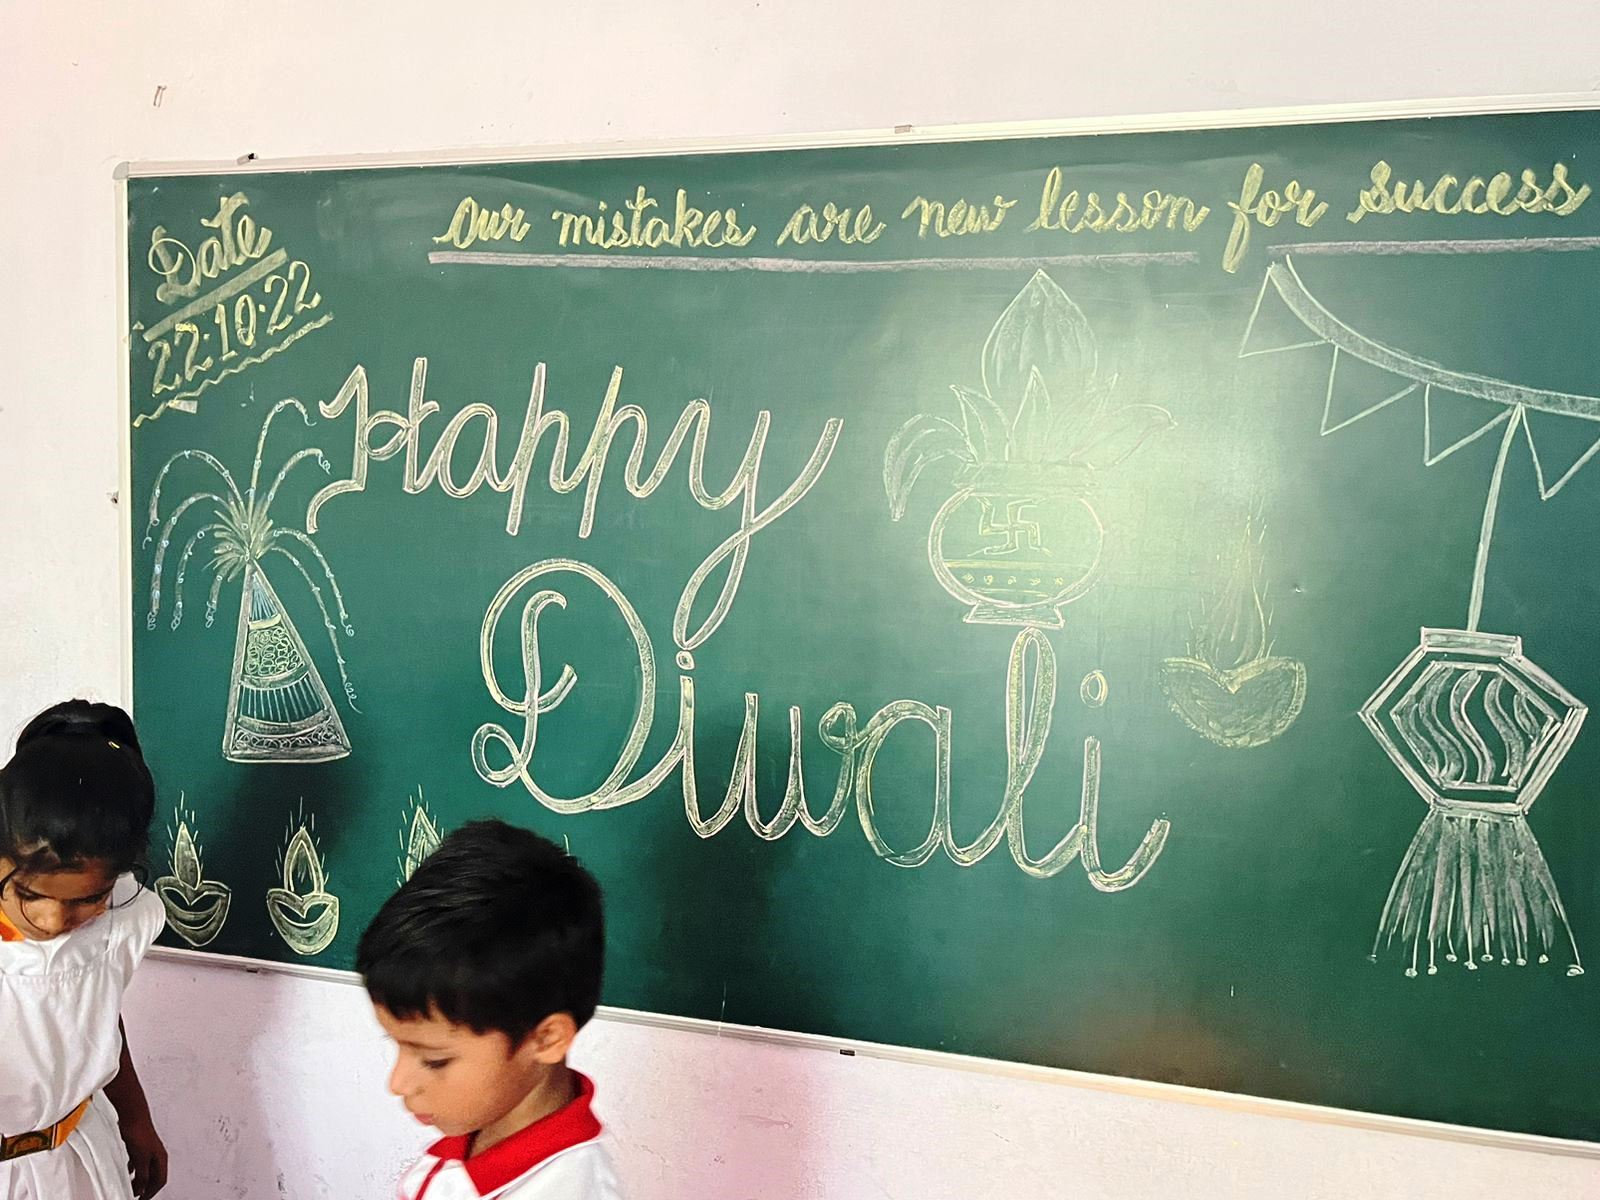 Our mistakes are new lesson for success
Date
22.10.22
Happy
Diwali